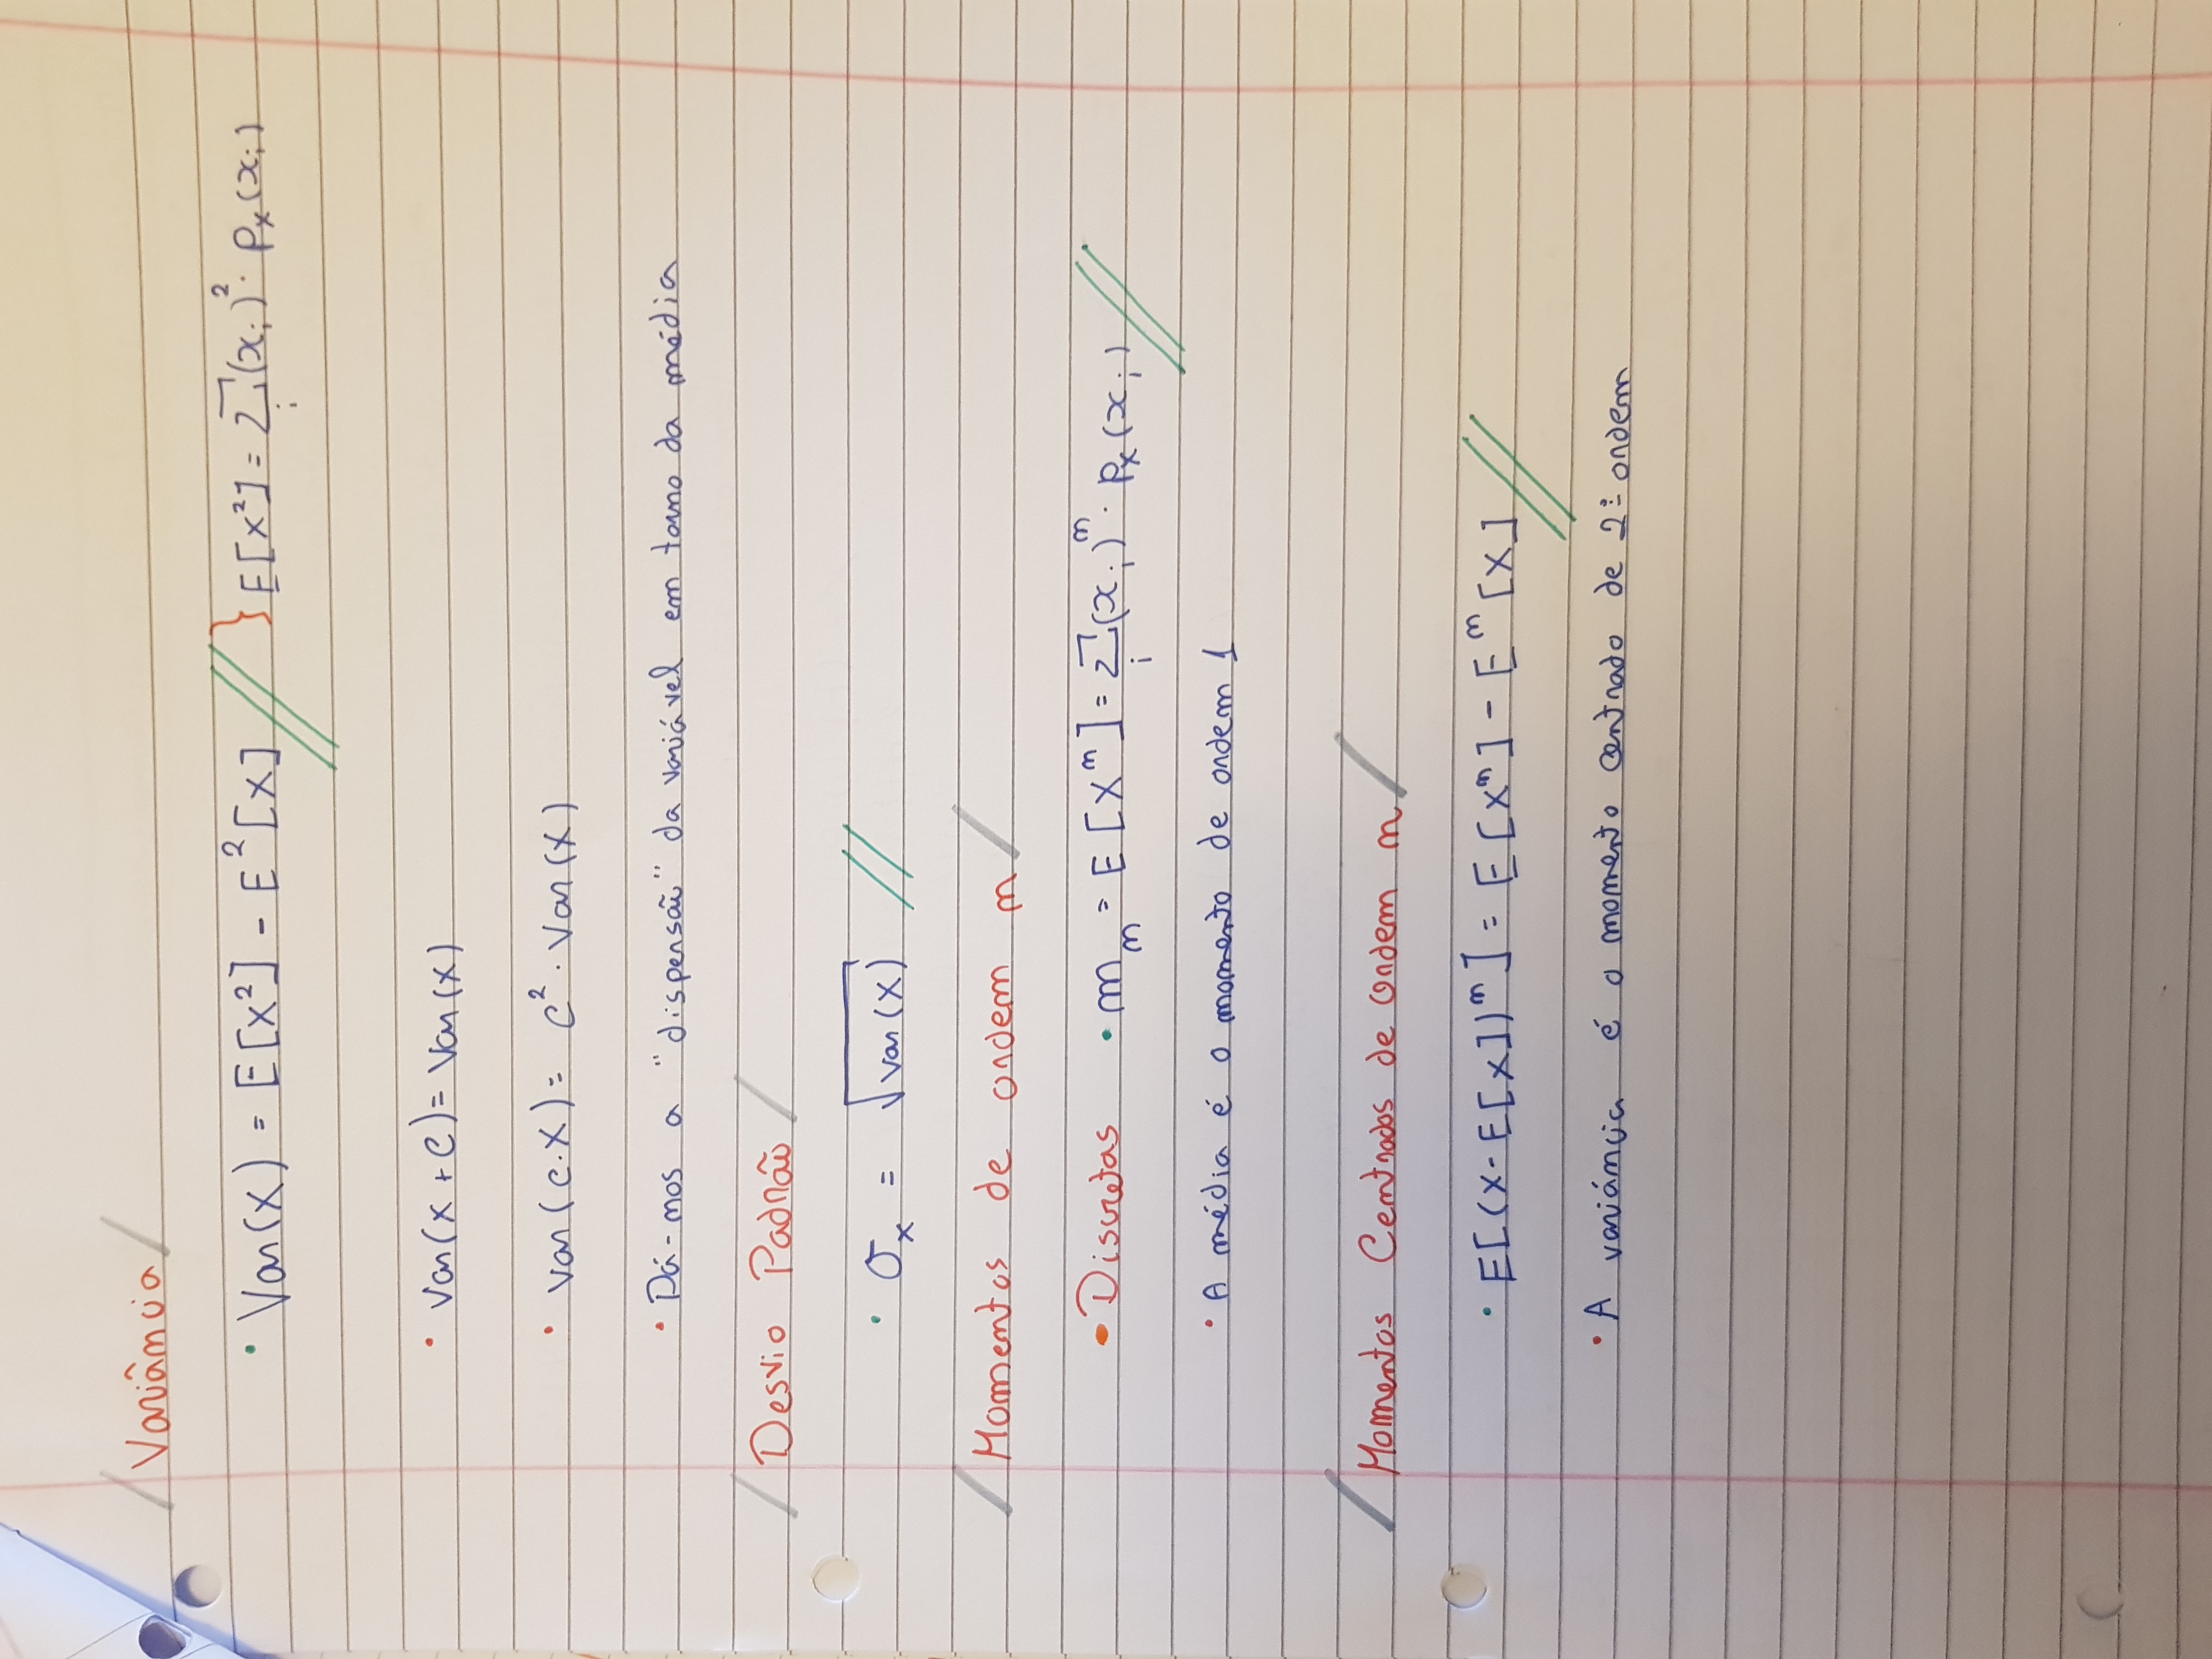 Variância
• Var(X) = E[X²] - E²[X] } E[X²] = Σᵢ(xᵢ)² · Pₓ(xᵢ)
• Var(X + C) = Var(X)
• Var(c.X) = C² . Var(X)
• Dá-nos a "dispersão" da variável em torno da média
Desvio Padrão
• σₓ = √Var(X)
Momentos de ordem n
• Discretas • mₙ = E[Xⁿ] = Σᵢ(xᵢ)ⁿ · Pₓ(xᵢ)
• A média é o momento de ordem 1
Momentos Centrados de Ordem n
• E[(X-E[X])ⁿ] = E[Xⁿ] - Eⁿ[X]
• A variância é o momento centrado de 2ª ordem